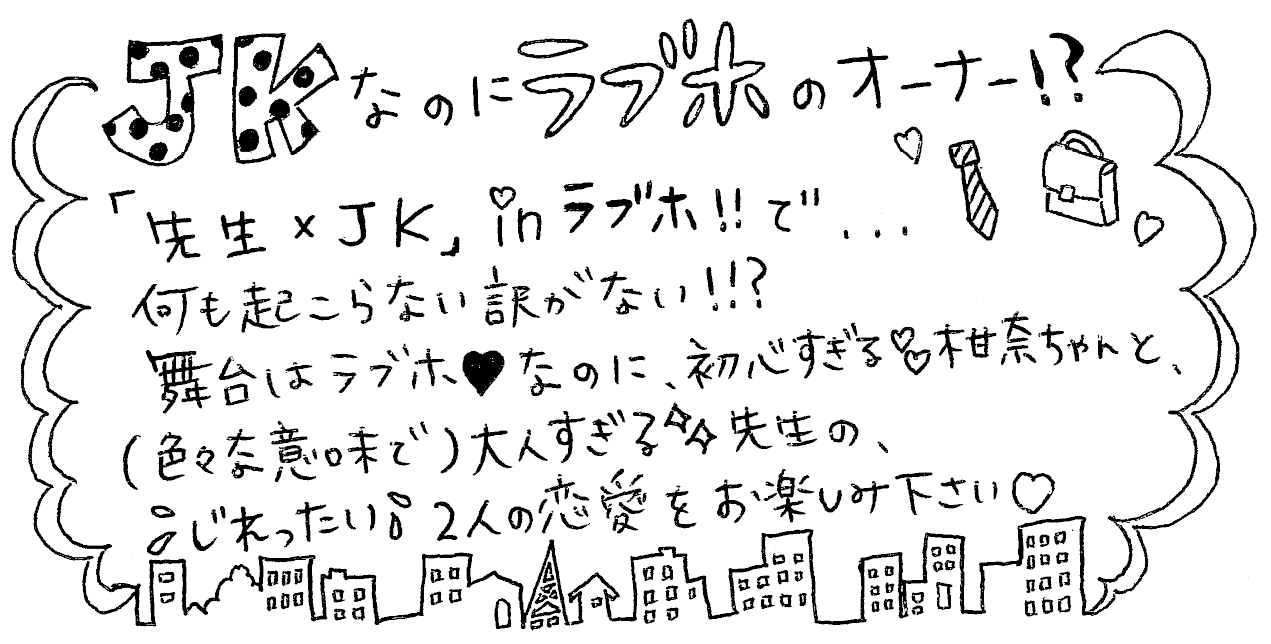 JKなのにラブホのオーナー!?
「先生×JK」inラブホ!!で...
何も起こらない訳がない!!?
舞台はラブホ♥なのに、初心すぎる♡♡柑奈ちゃんと、
(色々な意味で)大人すぎる✧✧先生の、
じれったい2人の恋愛をお楽しみ下さい♡